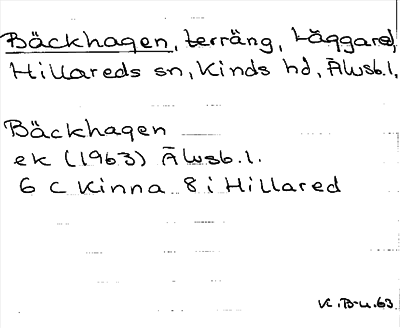 Bäckhagen, terräng, Häggared,
Hillareds sn, Kinds hd, Älvsb.l.
Bäckhagen
ek (1963) Älvsb.l.
6 C Kinna 8 i Hillared
K.B-u.63.